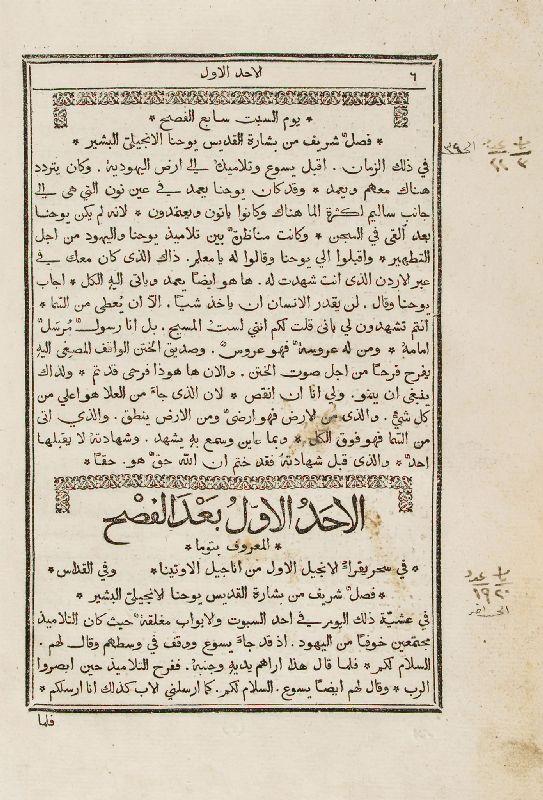 ٦ الاحد الاول
* يوم السبت سابع الفصح *
* فصلٌ شريف من بشارة القديس يوحنا الانجيليّ البشير *
في ذلك الزمان . اقبل يسوع وتلاميذهُ الي ارض اليهودية . وكان يتردد
هناك معهم ويعمد * وقد كان يوحنا يعمد في عين نون التي هي الي
جانب ساليم لكثرة الما هناك وكانوا ياتون ويعتمدون * لانه لم يكن يوحنا
بعد القي في السجن * وكانت مناظرةٌ بين تلاميذ يوحنا واليهود من اجل
التطهير * واقبلوا الي يوحنا وقالوا له يا معلم . ذاك الذي كان معك في
عبر الاردن الذي انت شهدت له . ها هو ايضًا يعمد وياتي اليه الكل * اجاب
يوحنا وقال . لن يقدر الانسان ان ياخذ شيًا . الا ان يُعطي من السما *
انتم تشهدون لي باني قلت لكم انني لست المسيح . بل انا رسولٌ مُرسلٌ
امامهُ * ومن له عروسةٌ فهو عروسٌ . وصديق الختن الواقف المصغي اليه
يفرح فرحًا من اجل صوت الختن . والان ها هوذا فرحي قد تم * ولذاك
ينبغي ان ينمو . ولي انا ان انقص * لان الذي جاءَ من العلا هو اعلي من
كل شيءٍ . والذي من الارض فهو ارضيٌ ومن الارض ينطق . والذي اتي
من السما فهو فوق الكل * وبما عاين وسمع به يشهد . وشهادتهُ لا يقبلها
احدٌ * والذي قبل شهادتهُ فقد ختم ان الله حقٌ هو . حقًا *
الاحَدُ الاوّلُ بَعْدَ الفِصْحِ
* المعروف بتوما *
* في سحر يقرا الانجيل الاول من اناجيل الاوتينا * وفي القداس *
* فصلٌ شريف من بشارة القديس يوحنا الانجيليّ البشير *
في عشية ذلك اليوم في احد السبوت والابواب مغلقةٌ حيث كان التلاميذ
مجتمعين خوفًا من اليهود . اذ قد جاءَ يسوع ووقف في وسطهم وقال لهم .
السلام لكم * فلما قال هذا اراهم يديهِ وجنبهُ . ففرح التلاميذ حين ابصروا
الرب * وقال لهم ايضًا يسوع . السلام لكم . كما ارسلني الاب كذلك انا ارسلكم *
فلما
عدد
١٩ ٢٠